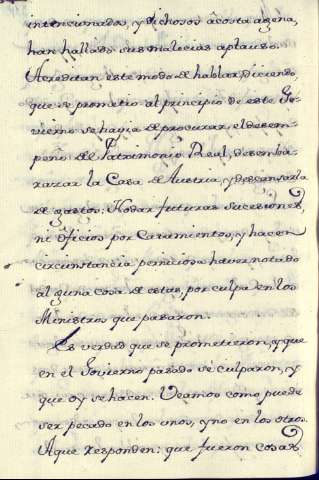 intencionados, y dichosos à costa agena,
han hallado sus malicias aplauso.
Acreditan este modo de hablar, diciendo,
que se prometio al principio de este Go-
vierno se havia de procurar, el desem-
peño del Patrimonio Real, desemba-
razar la Casa de Austria, y descansarla
de gastos; No dar futuras sucesiones,
ni Oficios por Casamientos, y hacen
circunstancia perniciosa haver notado
alguna cosa de estas, por culpa en los
Ministros que pasaron.
Es verdad que se prometieron, y que
en el Govierno pasado se culparon, y
que oy se hacen. Veamos como puede
ser pecado en los unos, y no en los otros.
A que responden: que fueron cosas